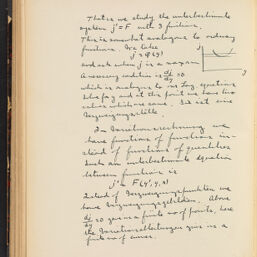 That is we study the underbestimmte
system j' = F with 3 functions.
This is somewhat analogous to ordinary
functions. We take
j = φ(y)
and ask when j is a maximum
A necessary condition is dj/dy = 0
which is analogous to our Lag. equations
Take for y and at this point we have two
values which are same. Sie ist eine
Verzweigungsstelle.
In Variationsrechnung we
have functions of functions in-
stead of functions of quantities
Such an underbestimmte Equation
between functions is
j' = F(y', y, x)
Instead of Verzweigungspunkten we
have Verzweigungsgebilden. Above
dj/dy = 0 gives a finite no of points, here
the Variationsgleichungen give us a
finite no of curves.